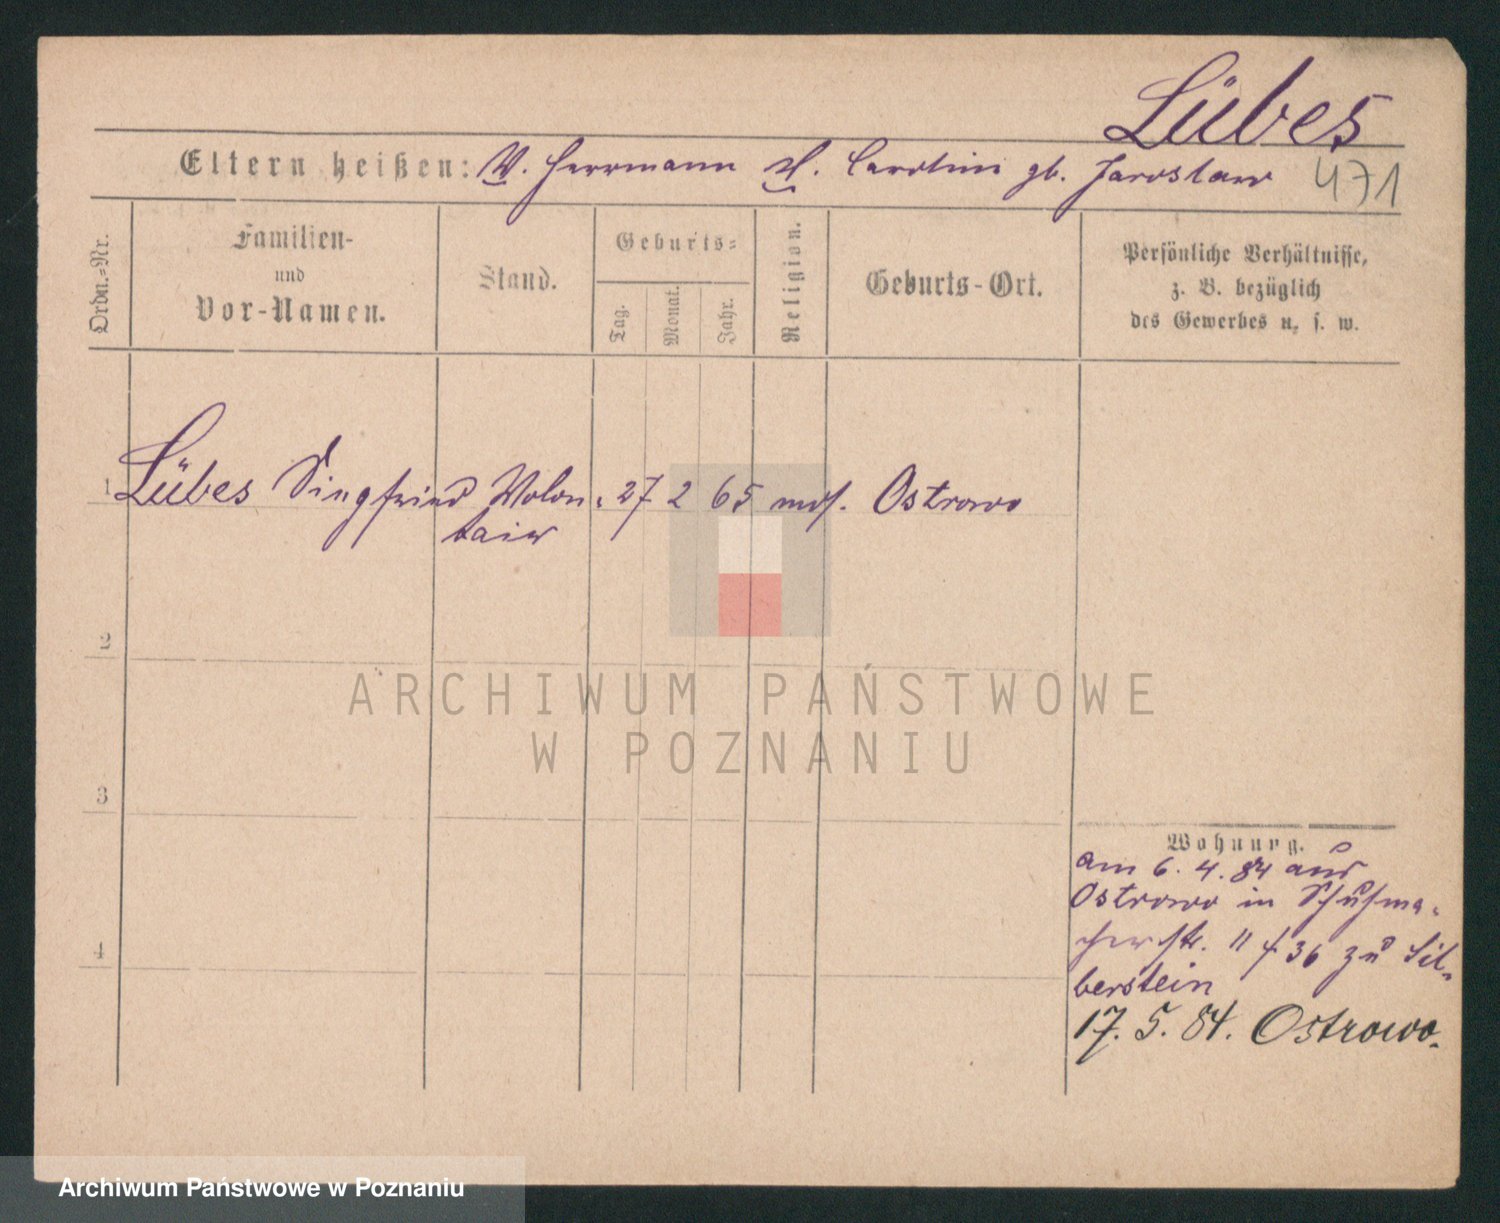 Lübes
Eltern heißen: V. Herrmann M. Caroline gb. Jaroslaw 471
Ordn.-Nr.
Familien-
und
Vor-Namen.
Stand.
Geburts-
Tag.
Monat.
Jahr.
Religion.
Geburts-Ort.
Persönliche Verhältnisse,
z. B. bezüglich
des Gewerbes u. s. w.
1 Lübes Siegfried Volon- 27 2 65 mos. Ostrowo
tair
2
3
4
Wohnung.
am 6. 4. 84 aus
Ostrowo in Schuhma-
cherstr. 11 f 36 zu Sil-
berstein
17. 5. 84. Ostrowo.
ARCHIWUM PAŃSTWOWE
W POZNANIU
Archiwum Państwowe w Poznaniu